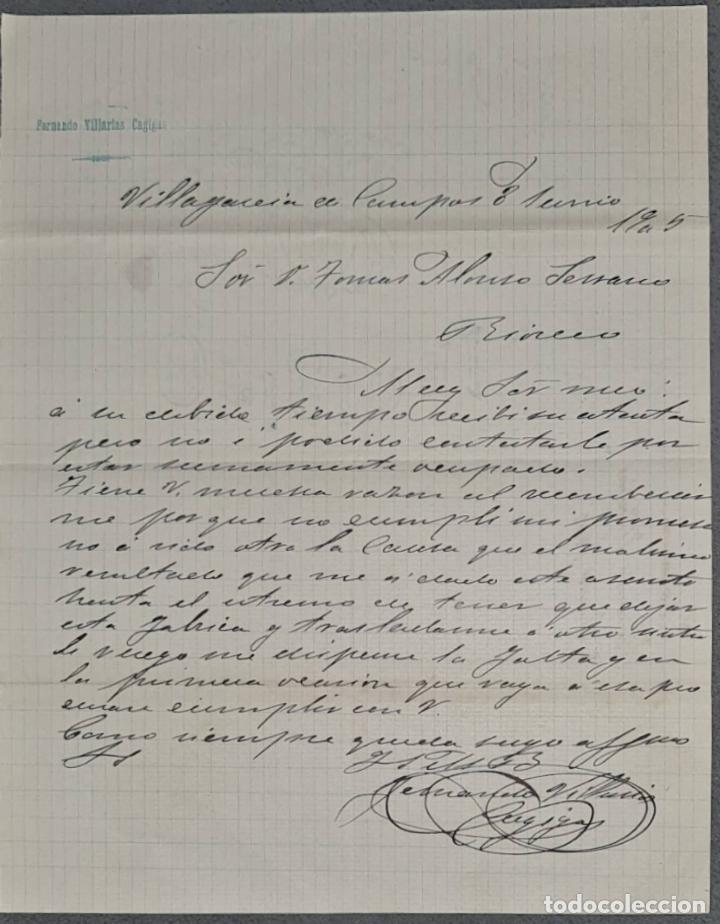 Fernando Villarias Cagigas
Villagarcia de Campos 8 Junio
1905
Sor D. Tomas Alonso Serrano
Rioseco
Muy Sor mio:
á su debido tiempo recibi su atenta
pero no é podido contestarle por
estar sumamente ocupado.
Tiene V. mucha razon al
me porque no cumpli mi promesa
no á sido otra la Causa que el malisimo
resultado que me á dado este asunto
hasta el estremo de tener que dejar
esta fabrica y trasladarme á otro
Le ruego me dispense la falta y en
la primera ocasion que vaya á esa pro
curare cumplir con V.
Como siempre queda suyo affmo
SS
Fernando Villarias
Cagigas
todocoleccion
todocoleccion.net